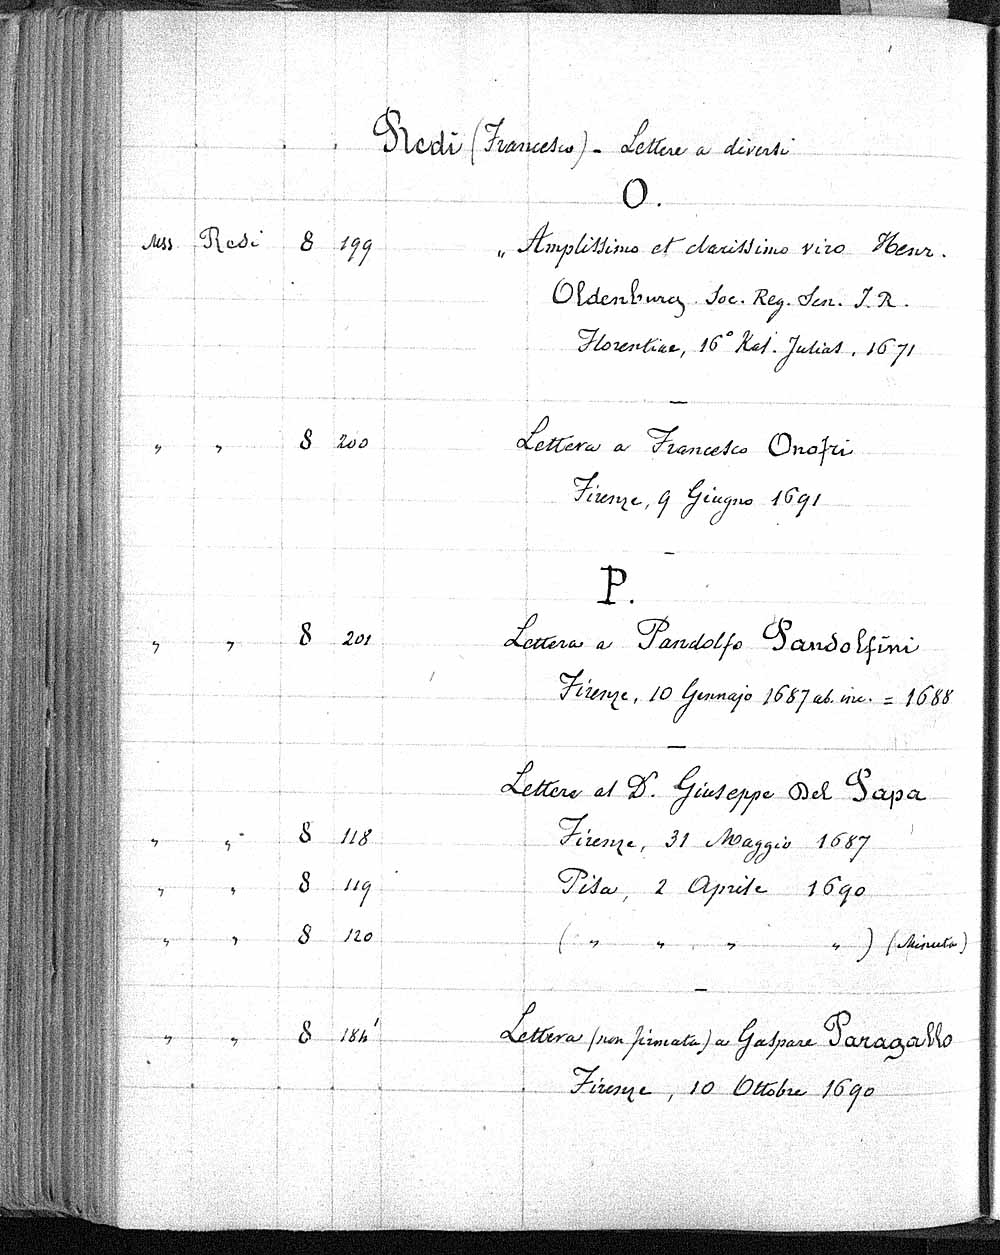 Redi (Francesco) - Lettere a diversi
O.
Mss Redi 8 199 „ Amplissimo et clarissimo viro Henr.
Oldenburg Soc. Reg. Sen. S. R.
Florentiae, 16° Kal. Julias, 1671
„ „ 8 200 Lettera a Francesco Onofri
Firenze, 9 Giugno 1691
P.
„ „ 8 201 Lettera a Pandolfo Pandolfini
Firenze, 10 Gennajo 1687 ab. inc. = 1688
Lettere al D. Giuseppe Del Papa
„ „ 8 118 Firenze, 31 Maggio 1687
„ „ 8 119 Pisa, 2 Aprile 1690
„ „ 8 120 ( „ „ „ „ ) (Minuta)
„ „ 8 184' Lettera (non firmata) a Gaspare Paragallo
Firenze, 10 Ottobre 1690